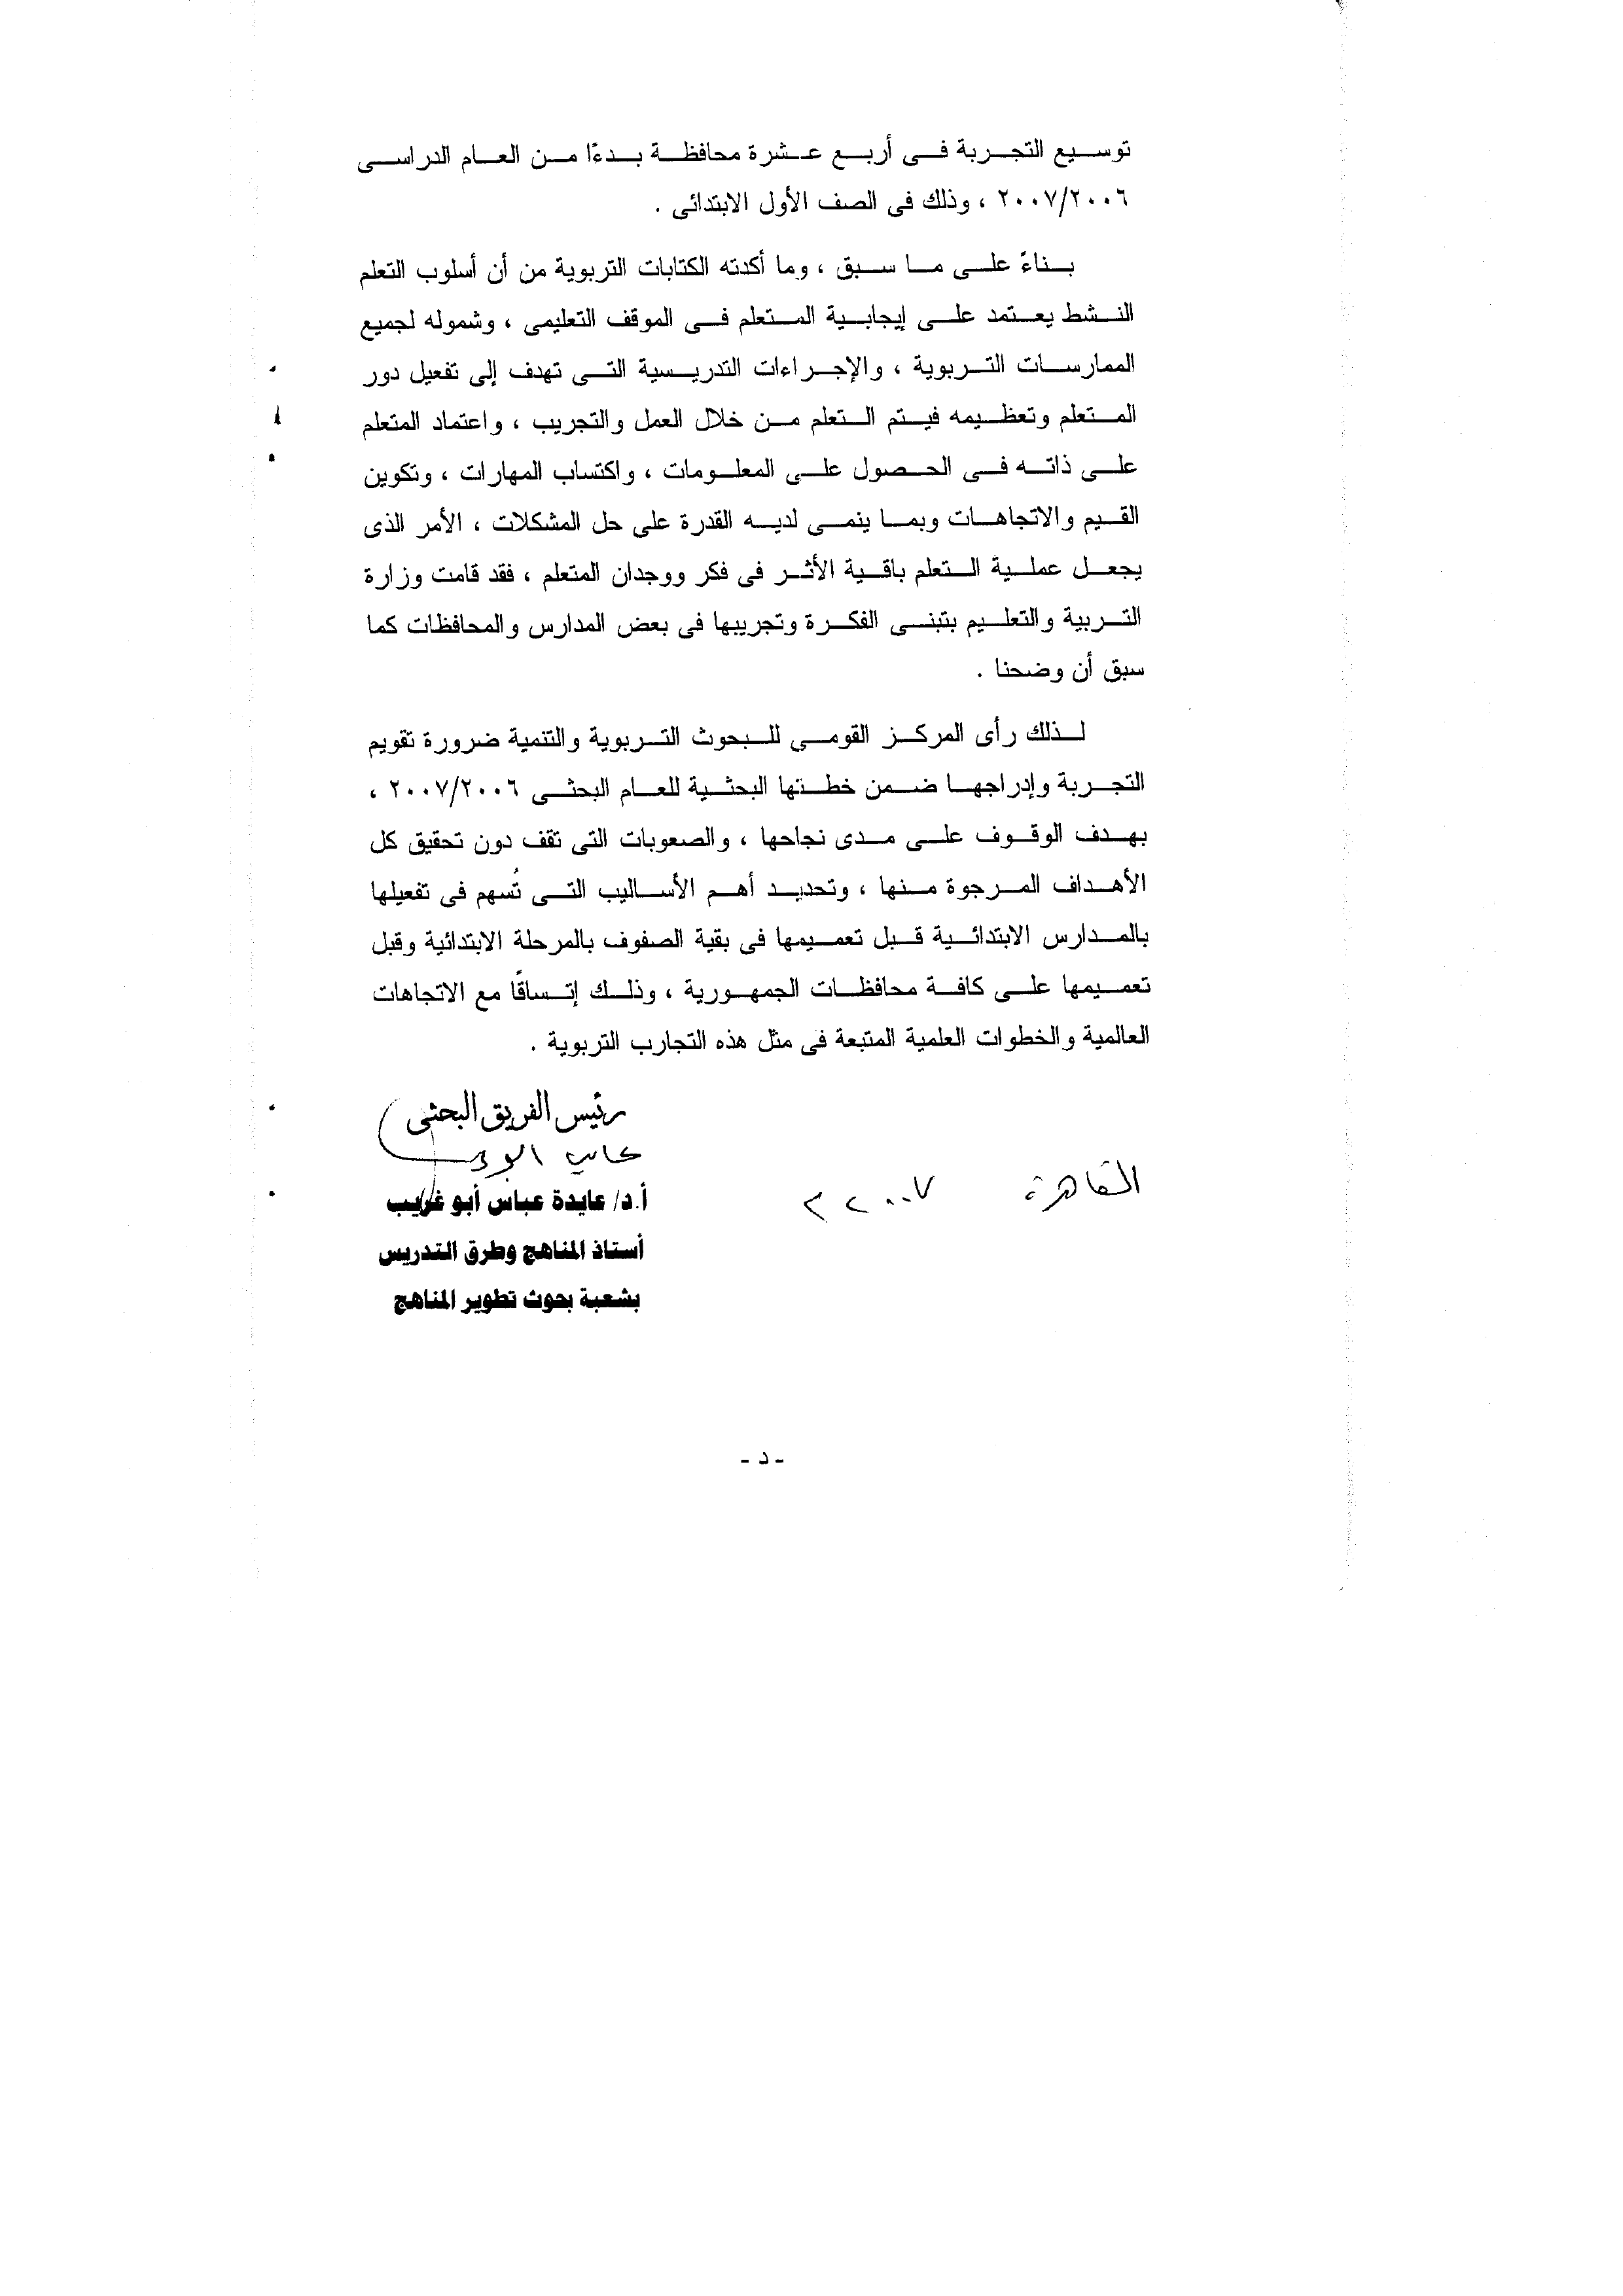 توسيع التجربة فى أربع عشرة محافظة بدءًا من العام الدراسى
٢٠٠٧/٢٠٠٦ ، وذلك فى الصف الأول الابتدائى .
بناءً على ما سبق ، وما أكدته الكتابات التربوية من أن أسلوب التعلم
النشط يعتمد على إيجابية المتعلم فى الموقف التعليمى ، وشموله لجميع
الممارسات التربوية ، والإجراءات التدريسية التى تهدف إلى تفعيل دور
المتعلم وتعظيمه فيتم التعلم من خلال العمل والتجريب ، واعتماد المتعلم
على ذاته فى الحصول على المعلومات ، واكتساب المهارات ، وتكوين
القيم والاتجاهات وبما ينمى لديه القدرة على حل المشكلات ، الأمر الذى
يجعل عملية التعلم باقية الأثر فى فكر ووجدان المتعلم ، فقد قامت وزارة
التربية والتعليم بتبنى الفكرة وتجريبها فى بعض المدارس والمحافظات كما
سبق أن وضحنا .
لذلك رأى المركز القومى للبحوث التربوية والتنمية ضرورة تقويم
التجربة وإدراجها ضمن خطتها البحثية للعام البحثى ٢٠٠٧/٢٠٠٦ ،
بهدف الوقوف على مدى نجاحها ، والصعوبات التى تقف دون تحقيق كل
الأهداف المرجوة منها ، وتحديد أهم الأساليب التى تُسهم فى تفعيلها
بالمدارس الابتدائية قبل تعميمها فى بقية الصفوف بالمرحلة الابتدائية وقبل
تعميمها على كافة محافظات الجمهورية ، وذلك إتساقًا مع الاتجاهات
العالمية والخطوات العلمية المتبعة فى مثل هذه التجارب التربوية .
رئيس الفريق البحثى
القاهرة ٢٠٠٧
أ.د/ عايدة عباس أبو غريب
أستاذ المناهج وطرق التدريس
بشعبة بحوث تطوير المناهج
- د -